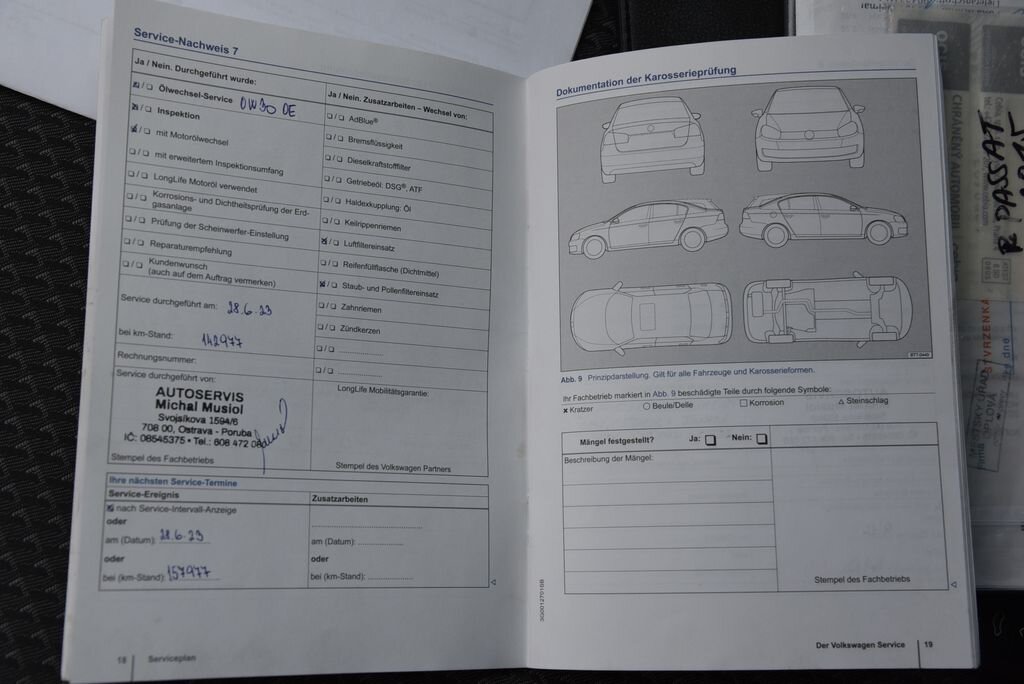 Service-Nachweis 7
Ja / Nein. Durchgeführt wurde:
☒/☐ Ölwechsel-Service 0W30 DE
☒/☐ Inspektion
☒/☐ mit Motorölwechsel
☐/☐ mit erweitertem Inspektionsumfang
☐/☐ LongLife Motoröl verwendet
☐/☐ Korrosions- und Dichtheitsprüfung der Erd-
gasanlage
☐/☐ Prüfung der Scheinwerfer-Einstellung
☐/☐ Reparaturempfehlung
☐/☐ Kundenwunsch
(auch auf dem Auftrag vermerken)
Service durchgeführt am: 28.6.23
bei km-Stand: 142977
Rechnungsnummer:
Service durchgeführt von:
AUTOSERVIS
Michal Musiol
Svojsíkova 1594/6
708 00, Ostrava - Poruba
IČ: 08545375 • Tel.: 608 472
Stempel des Fachbetriebs
Ja / Nein. Zusatzarbeiten – Wechsel von:
☐/☐ AdBlue®
☐/☐ Bremsflüssigkeit
☐/☐ Dieselkraftstofffilter
☐/☐ Getriebeöl: DSG®, ATF
☐/☐ Haldexkupplung: Öl
☐/☐ Keilrippenriemen
☒/☐ Luftfiltereinsatz
☐/☐ Reifenfüllflasche (Dichtmittel)
☒/☐ Staub- und Pollenfiltereinsatz
☐/☐ Zahnriemen
☐/☐ Zündkerzen
☐/☐ ....................
☐/☐ ....................
LongLife Mobilitätsgarantie:
Stempel des Volkswagen Partners
Ihre nächsten Service-Termine
Service-Ereignis
☒ nach Service-Intervall-Anzeige
oder
am (Datum): 28.6.23
oder
bei (km-Stand): 157977
Zusatzarbeiten
am (Datum): ....................
oder
bei (km-Stand): ....................
18 Serviceplan
Dokumentation der Karosserieprüfung
B7T-0449
Abb. 9 Prinzipdarstellung. Gilt für alle Fahrzeuge und Karosserieformen.
Ihr Fachbetrieb markiert in Abb. 9 beschädigte Teile durch folgende Symbole:
× Kratzer ○ Beule/Delle □ Korrosion △ Steinschlag
Mängel festgestellt? Ja: ☐ Nein: ☐
Beschreibung der Mängel:
Stempel des Fachbetriebs
Der Volkswagen Service 19
CHRÁNĚNÝ AUTOMOBIL
PASSAT